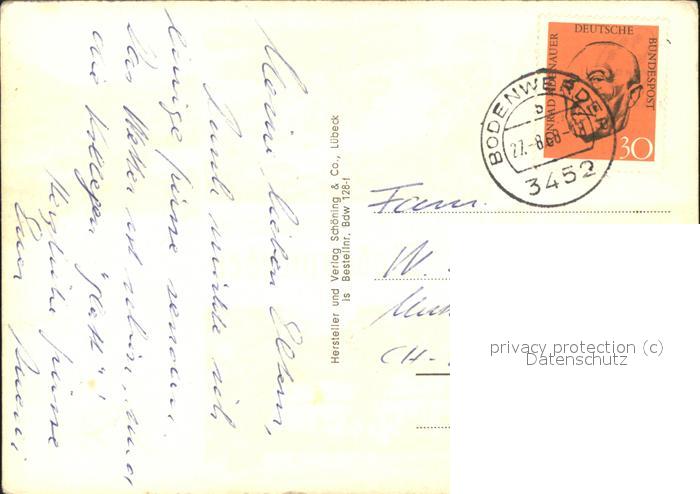 Meine lieben Eltern,
Damit möchte ich
einige Grüsse senden.
Das Wetter ist schön, und
die Kollegen "glatt"!
Herzliche Grüsse
Euer
Hersteller und Verlag Schöning & Co., Lübeck
is Bestellnr. Bdw 128-f
DEUTSCHE BUNDESPOST
KONRAD ADENAUER
30
BODENWERDER
b
27.-8.68-
3452
Fam.
W.
CH-
privacy protection (c)
Datenschutz